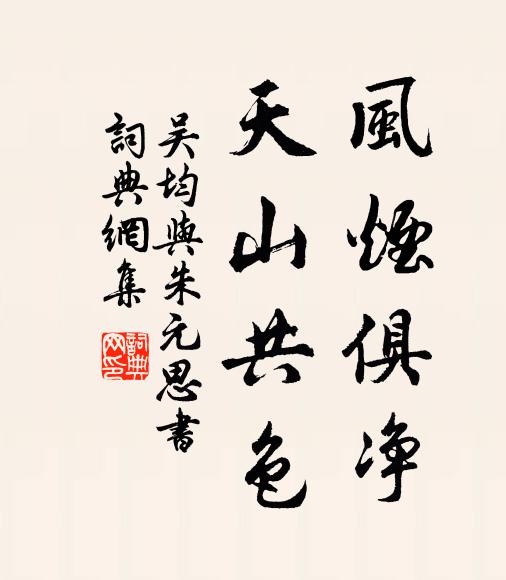 風煙俱净
天山共色
吳均與朱元思書
詞典網集
詞典
网印